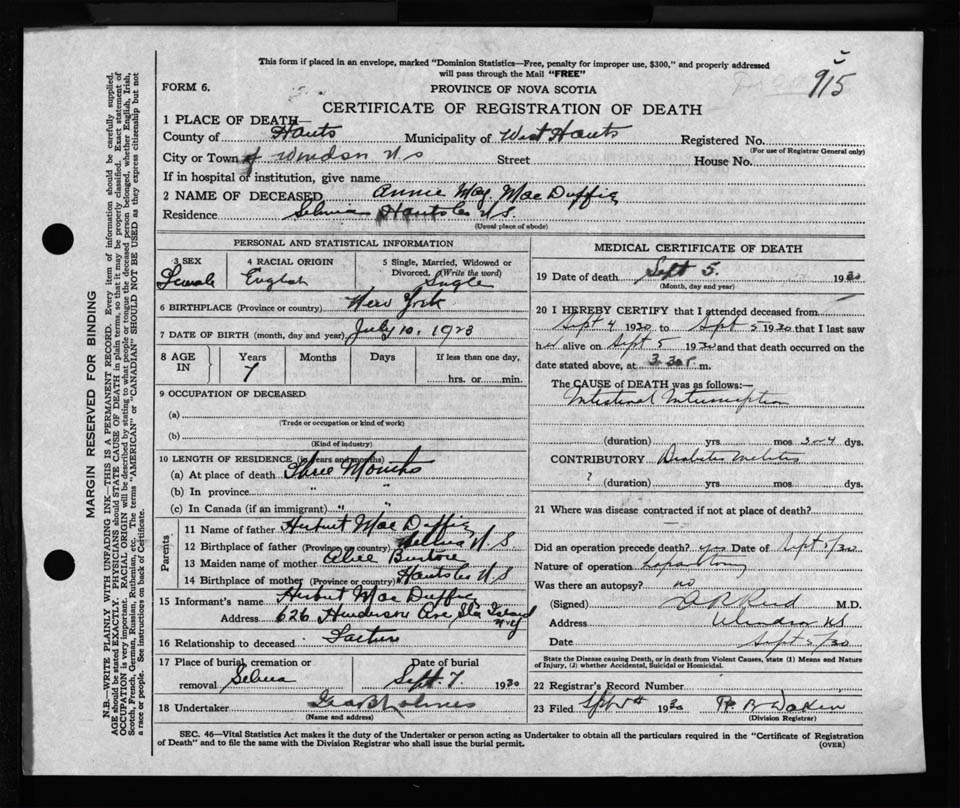 This form if placed in an envelope, marked "Dominion Statistics—Free, penalty for improper use, $300," and properly addressed
will pass through the Mail "FREE"
915
FORM 6.
PROVINCE OF NOVA SCOTIA
CERTIFICATE OF REGISTRATION OF DEATH
1 PLACE OF DEATH—
County of Hants Municipality of West Hants Registered No.
(For use of Registrar General only)
City or Town of Windsor N S Street House No.
If in hospital or institution, give name
2 NAME OF DECEASED Annie May MacDuffie
Residence Selma Hants Co N.S.
(Usual place of abode)
PERSONAL AND STATISTICAL INFORMATION
3 SEX 4 RACIAL ORIGIN 5 Single, Married, Widowed or
Divorced. (Write the word)
Female English Single
6 BIRTHPLACE (Province or country) New York
7 DATE OF BIRTH (month, day and year) July 10, 1923
8 AGE IN Years Months Days If less than one day,
7 hrs. or min.
9 OCCUPATION OF DECEASED
(a)
(Trade or occupation or kind of work)
(b)
(Kind of industry)
10 LENGTH OF RESIDENCE (in years and months)
(a) At place of death Three Months
(b) In province " "
(c) In Canada (if an immigrant) " "
Parents
11 Name of father Herbert MacDuffie
12 Birthplace of father (Province or country) Selma N.S.
13 Maiden name of mother Alice
14 Birthplace of mother (Province or country) Hants Co N S
15 Informant's name Herbert MacDuffie
Address 626 Henderson Ave Sta Island
N.Y
16 Relationship to deceased Father
17 Place of burial, cremation or Date of burial
removal Selma Sept. 7 1930
18 Undertaker Geo B Holmes
(Name and address)
MEDICAL CERTIFICATE OF DEATH
19 Date of death Sept 5. 1930
(Month, day and year)
20 I HEREBY CERTIFY that I attended deceased from
Sept 4 1930 to Sept 5 1930 that I last saw
her alive on Sept 5 1930 and that death occurred on the
date stated above, at 3.30 P. m.
The CAUSE OF DEATH was as follows:—
Intestinal Intussuseption
(duration) yrs mos 3 or 4 dys.
CONTRIBUTORY Diabetes Melites
? (duration) yrs. mos. dys.
21 Where was disease contracted if not at place of death?
Did an operation precede death? yes Date of Sept 5/30
Nature of operation Laparotomy
Was there an autopsy? no
(Signed) Reid M.D.
Address Windsor NS
Date Sept 5/30
State the Disease causing Death, or in death from Violent Causes, state (1) Means and Nature
of Injury, (2) whether Accidental, Suicidal or Homicidal.
22 Registrar's Record Number
23 Filed Sept 1930
(Division Registrar)
SEC. 46—Vital Statistics Act makes it the duty of the Undertaker or person acting as Undertaker to obtain all the particulars required in the "Certificate of Registration
of Death" and to file the same with the Division Registrar who shall issue the burial permit.
(OVER)
MARGIN RESERVED FOR BINDING
N.B.—WRITE PLAINLY WITH UNFADING INK—THIS IS A PERMANENT RECORD. Every item of information should be carefully supplied.
AGE should be stated EXACTLY. PHYSICIANS should STATE CAUSE OF DEATH in plain terms, so that it may be properly classified. Exact statement of
OCCUPATION is very important. RACIAL ORIGIN will be described by stating to what people or tongue the deceased person belonged, whether English, Irish,
Scotch, French, German, Russian, Ruthenian, etc. The terms "AMERICAN" or "CANADIAN" SHOULD NOT BE USED as they express citizenship but not
a race or people. See instructions on back of Certificate.